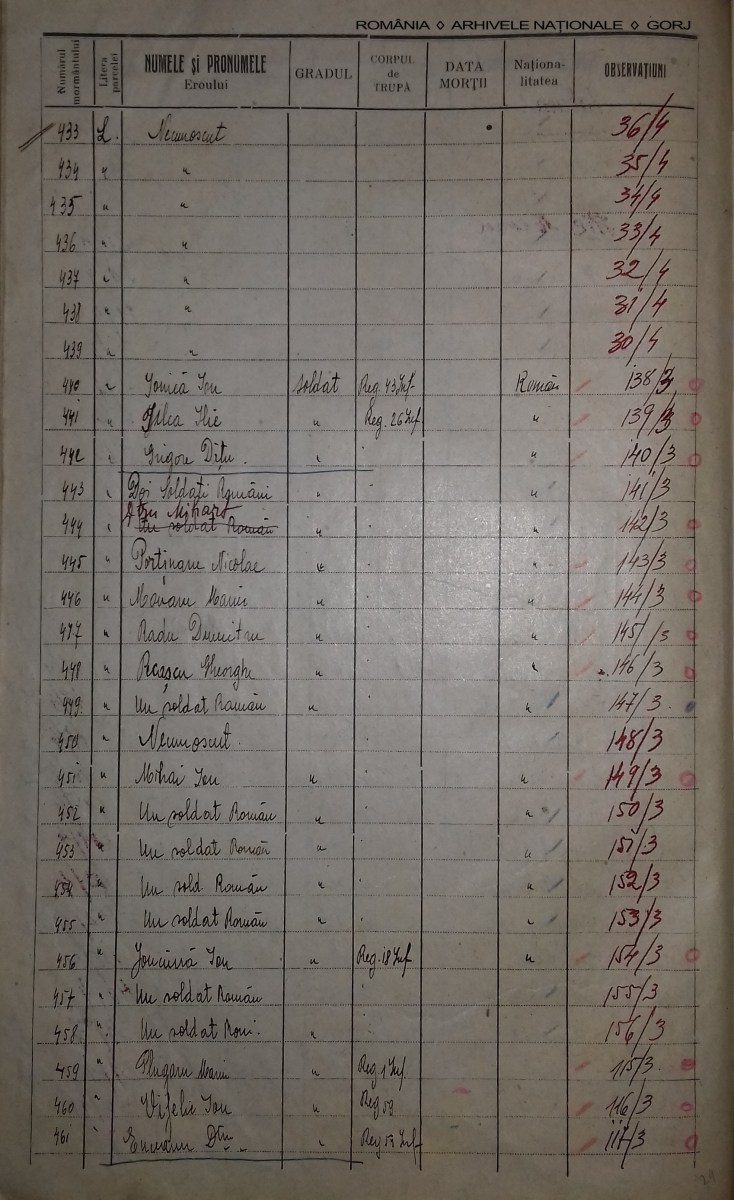 ROMÂNIA ◊ ARHIVELE NAȚIONALE ◊ GORJ
Numărul mormântului Litera parcelei NUMELE și PRONUMELE Eroului GRADUL CORPUL de TRUPĂ DATA MORȚII Naționalitatea OBSERVAȚIUNI
433 L. Necunoscut 36/4
434 " " 35/4
435 " " 34/4
436 " " 33/4
437 " " 32/4
438 " " 31/4
439 " " 30/4
440 " Ionică Ion soldat Reg. 43 Inf Român 138/3
441 " Gîlca Ilie " Reg. 26 Inf " 139/3
442 " Grigore Dțu. " " 140/3
443 " Doi Soldați Români " " 141/3
444 " Un soldat Român " " 142/3
445 " Portinaru Nicolae " " 143/3
446 " Marin " " 144/3
447 " Radu Dumitru " " 145/3
448 " Gheorghe " " 146/3
449 " Un soldat Român " " 147/3
450 " Necunoscut. 148/3
451 " Mihai Ion " " 149/3
452 " Un soldat Român " " 150/3
453 " Un soldat Român " " 151/3
454 " Un sold. Român " " 152/3
455 " Un soldat Român " " 153/3
456 " Ion " Reg. 18 Inf " 154/3
457 " Un soldat Român 155/3
458 " Un soldat Rom. " 156/3
459 " Plugaru Marin " Reg 1 Inf. 115/3
460 " Ion " Reg 59 116/3
461 " " Reg 59 Inf 117/3